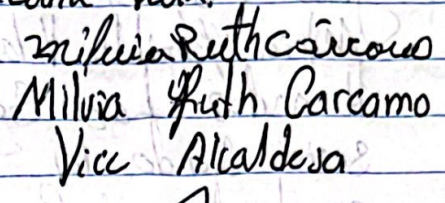 Milvia Ruth Cárcamo
Milvia Ruth Carcamo
Vice Alcaldesa